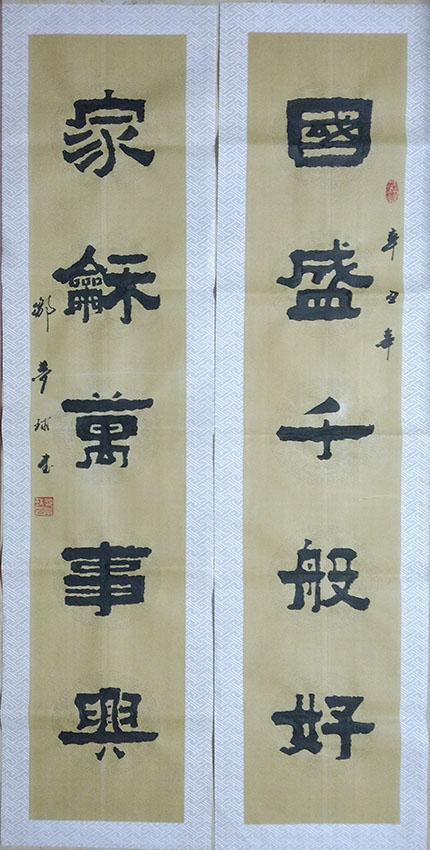 國盛千般好
辛丑年
家龢萬事興
鄭夢球書